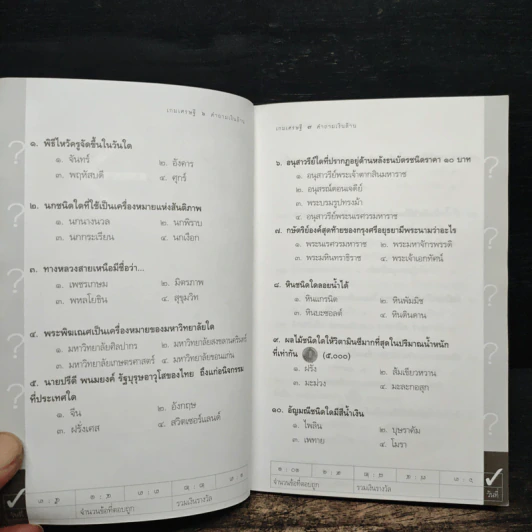 เกมเศรษฐี ๒ คำถามเงินล้าน
๑. พิธีไหว้ครูจัดขึ้นในวันใด
๑. จันทร์ ๒. อังคาร
๓. พฤหัสบดี ๔. ศุกร์
๒. นกชนิดใดที่ใช้เป็นเครื่องหมายแห่งสันติภาพ
๑. นกนางนวล ๒. นกพิราบ
๓. นกกระเรียน ๔. นกเงือก
๓. ทางหลวงสายเหนือมีชื่อว่า...
๑. เพชรเกษม ๒. มิตรภาพ
๓. พหลโยธิน ๔. สุขุมวิท
๔. พระพิฆเณศเป็นเครื่องหมายของมหาวิทยาลัยใด
๑. มหาวิทยาลัยศิลปากร ๒. มหาวิทยาลัยสงขลานครินทร์
๓. มหาวิทยาลัยเกษตรศาสตร์ ๔. มหาวิทยาลัยขอนแก่น
๕. นายปรีดี พนมยงค์ รัฐบุรุษอาวุโสของไทย ถึงแก่อนิจกรรม
ที่ประเทศใด
๑. จีน ๒. อังกฤษ
๓. ฝรั่งเศส ๔. สวิตเซอร์แลนด์
จำนวนข้อที่ตอบถูก รวมเงินรางวัล
เกมเศรษฐี ๒ คำถามเงินล้าน
๖. อนุสาวรีย์ใดที่ปรากฏอยู่ด้านหลังธนบัตรชนิดราคา ๑๐ บาท
๑. อนุสาวรีย์พระเจ้าตากสินมหาราช
๒. อนุสรณ์ดอนเจดีย์
๓. พระบรมรูปทรงม้า
๔. อนุสาวรีย์พระนเรศวรมหาราช
๗. กษัตริย์องค์สุดท้ายของกรุงศรีอยุธยามีพระนามว่าอะไร
๑. พระนเรศวรมหาราช ๒. พระมหาจักรพรรดิ
๓. พระมหินทราธิราช ๔. พระเจ้าเอกทัศน์
๘. หินชนิดใดลอยน้ำได้
๑. หินแกรนิต ๒. หินพัมมิซ
๓. หินบะซอลต์ ๔. หินดินดาน
๙. ผลไม้ชนิดใดให้วิตามินซีมากที่สุดในปริมาณน้ำหนัก
ที่เท่ากัน (๕,๐๐๐)
๑. ฝรั่ง ๒. ส้มเขียวหวาน
๓. มะม่วง ๔. มะละกอสุก
๑๐. อัญมณีชนิดใดมีสีน้ำเงิน
๑. ไพลิน ๒. บุษราคัม
๓. เพทาย ๔. โมรา
จำนวนข้อที่ตอบถูก รวมเงินรางวัล วันที่